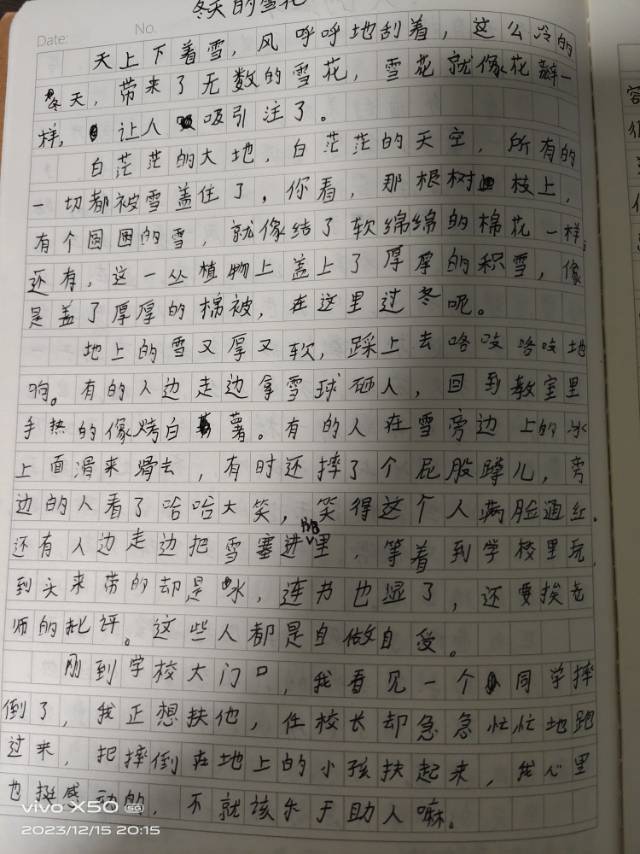 冬天的雪花
Date:
No.
天上下着雪，风呼呼地刮着，这么冷的
冬天，带来了无数的雪花，雪花就像花瓣一
样，让人吸引注了。
白茫茫的大地，白茫茫的天空，所有的
一切都被雪盖住了。你看，那根树枝上，
有个圆圆的雪，就像结了软绵绵的棉花一样。
还有，这一丛植物上盖上了厚厚的积雪，像
是盖了厚厚的棉被，在这里过冬呢。
地上的雪又厚又软，踩上去咯吱咯吱地
响。有的人边走边拿雪球砸人，回到教室里
手热的像烤白薯。有的人在雪旁边上的冰
上面滑来滑去，有时还摔了个屁股蹲儿，旁
边的人看了哈哈大笑，笑得这个人满脸通红。
还有人边走边把雪塞进包里，等着到学校里玩，
到头来带的却是水，连书也湿了，还要挨老
师的批评。这些人都是自做自受。
刚到学校大门口，我看见一个同学摔
倒了，我正想扶他，任校长却急急忙忙地跑
过来，把摔倒在地上的小孩扶起来，我心里
也挺感动的，不就该乐于助人嘛。
vivo X50 5G
2023/12/15 20:15